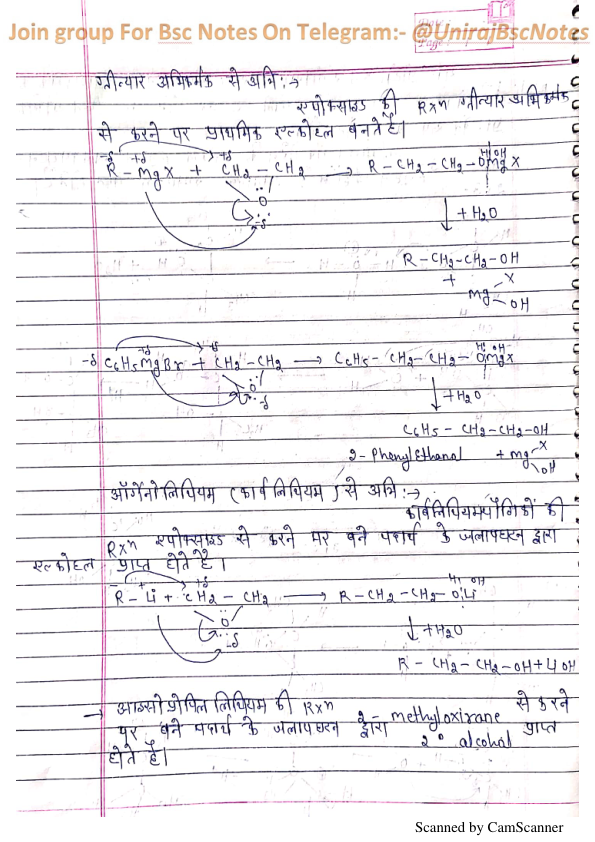 Join group For Bsc Notes On Telegram:- @UnirajBscNotes
ग्रीन्यार अभिकर्मक से अभि :→
एपोक्साइड की Rxn ग्रीन्यार अभिकर्मक
से करने पर प्राथमिक एल्कोहल बनते है।
-δ +δ +δ
R - MgX + CH2 - CH2 → R - CH2 - CH2 - OMgX
H OH
O
-δ
↓ +H2O
R - CH2 - CH2 - OH
+
Mg X
OH
+δ +δ
-δ C6H5MgBr + CH2 - CH2 → C6H5 - CH2 - CH2 - OMgX
H OH
O
-δ
↓ +H2O
C6H5 - CH2 - CH2 - OH
2- PhenylEthanol + Mg X
OH
ऑर्गेनोलिथियम (कार्बलिथियम) से अभि :→
कार्बलिथियमयौगिकों की
Rxn एपोक्साइड से करने पर बने पदार्थ के जलापघटन द्वारा
एल्कोहल प्राप्त होते है।
- + +δ
R - Li + CH2 - CH2 → R - CH2 - CH2 - OLi
H OH
O
-δ
↓ +H2O
R - CH2 - CH2 - OH + LiOH
→ आइसोप्रोपिल लिथियम की Rxn 2- methyloxirane से करने
पर बने पदार्थ के जलापघटन द्वारा 2° alcohol प्राप्त
होते है।
Scanned by CamScanner